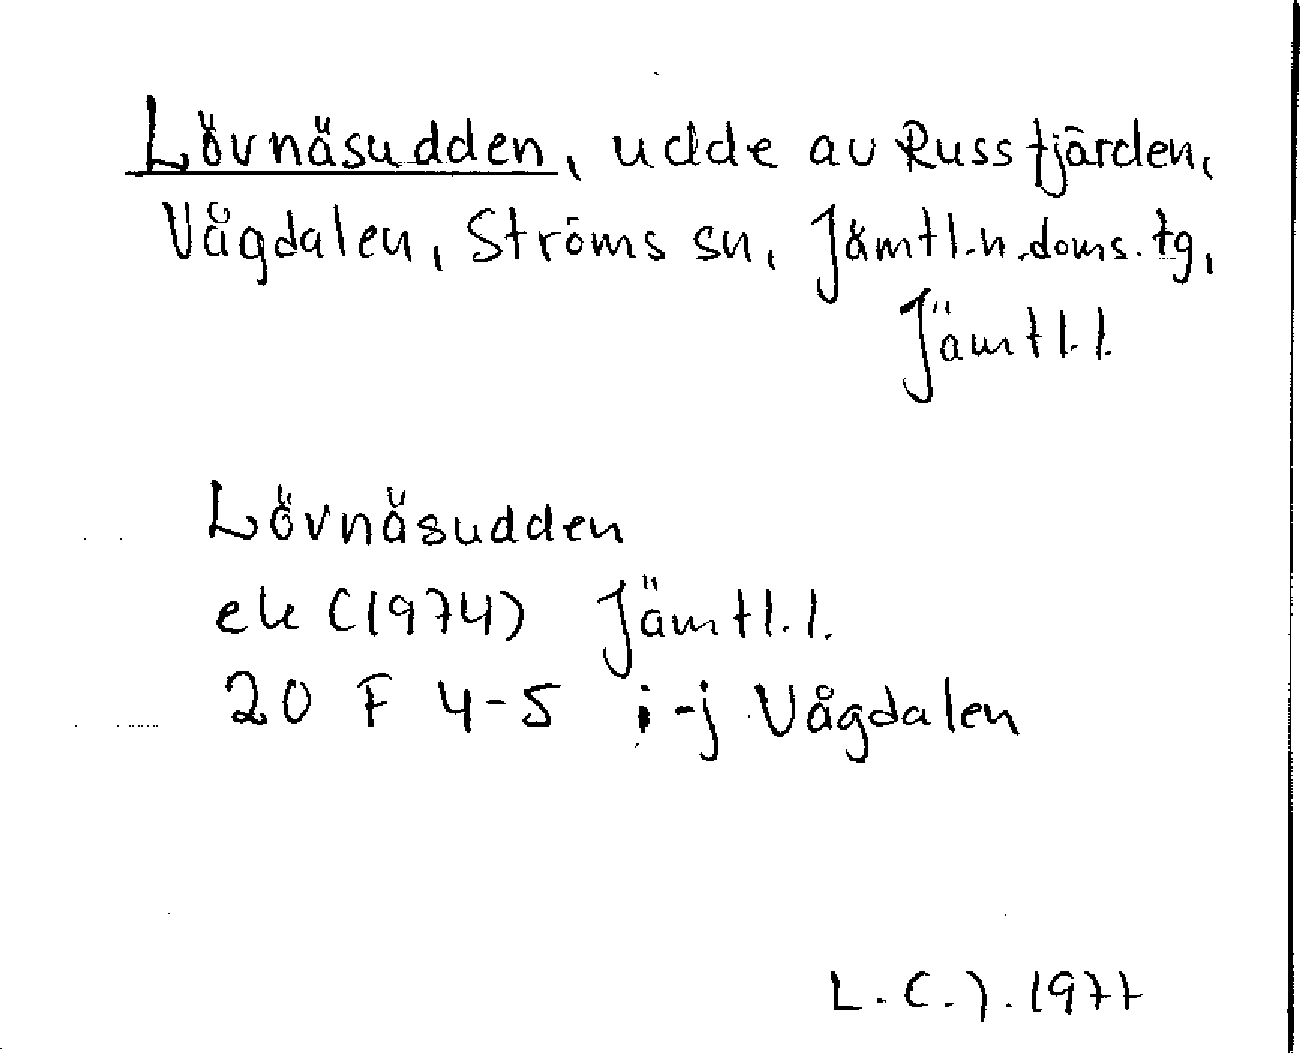 Lövnäsudden, udde av Russfjärden,
Vågdalen, Ströms sn, Jämtl.n.doms.tg,
Jämtl.l.
Lövnäsudden
ek (1974) Jämtl.l.
20 F 4-5 i-j Vågdalen
L.C.J. 1977